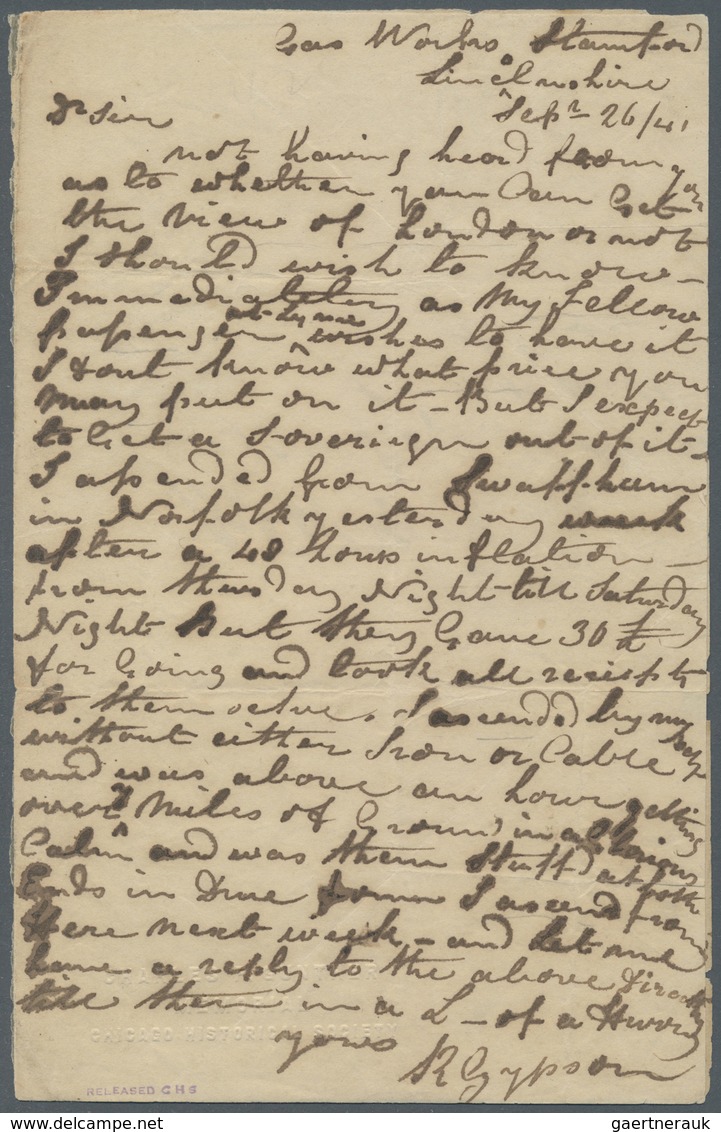 Gas Works Stamford
Lincolnshire
Sepr 26/41
Dr Sir
not having heard from you
as to whether you Can Get
the View of London or not
I should wish to know –
Immediately as My fellow
Pasenger at Lynn wishes to have it
I dont know what price you
may put on it – But I expect
to Get a Soverign out of it –
I asended from Swaffham
in Norfolk yesterday week
after a 48 hours inflation –
from Thursday Night till Saturday
Night But they Gave 30 £
for Going and took all
to themselves. I ascended by my self
without either Iron or Cable
and was above an hour getting
over 7 Miles of Ground in a Glorious
Calm and was them at both
Ends in I ascend from
Here next week – and let me
have a reply to the above directly
till then in a L – of a Hurry
yours
R Gypson
CHICAGO HISTORICAL SOCIETY
RELEASED CHS
gaertnerauk